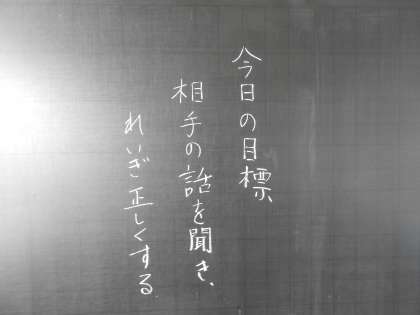 今日の目標
相手の話を聞き、
れいぎ正しくする